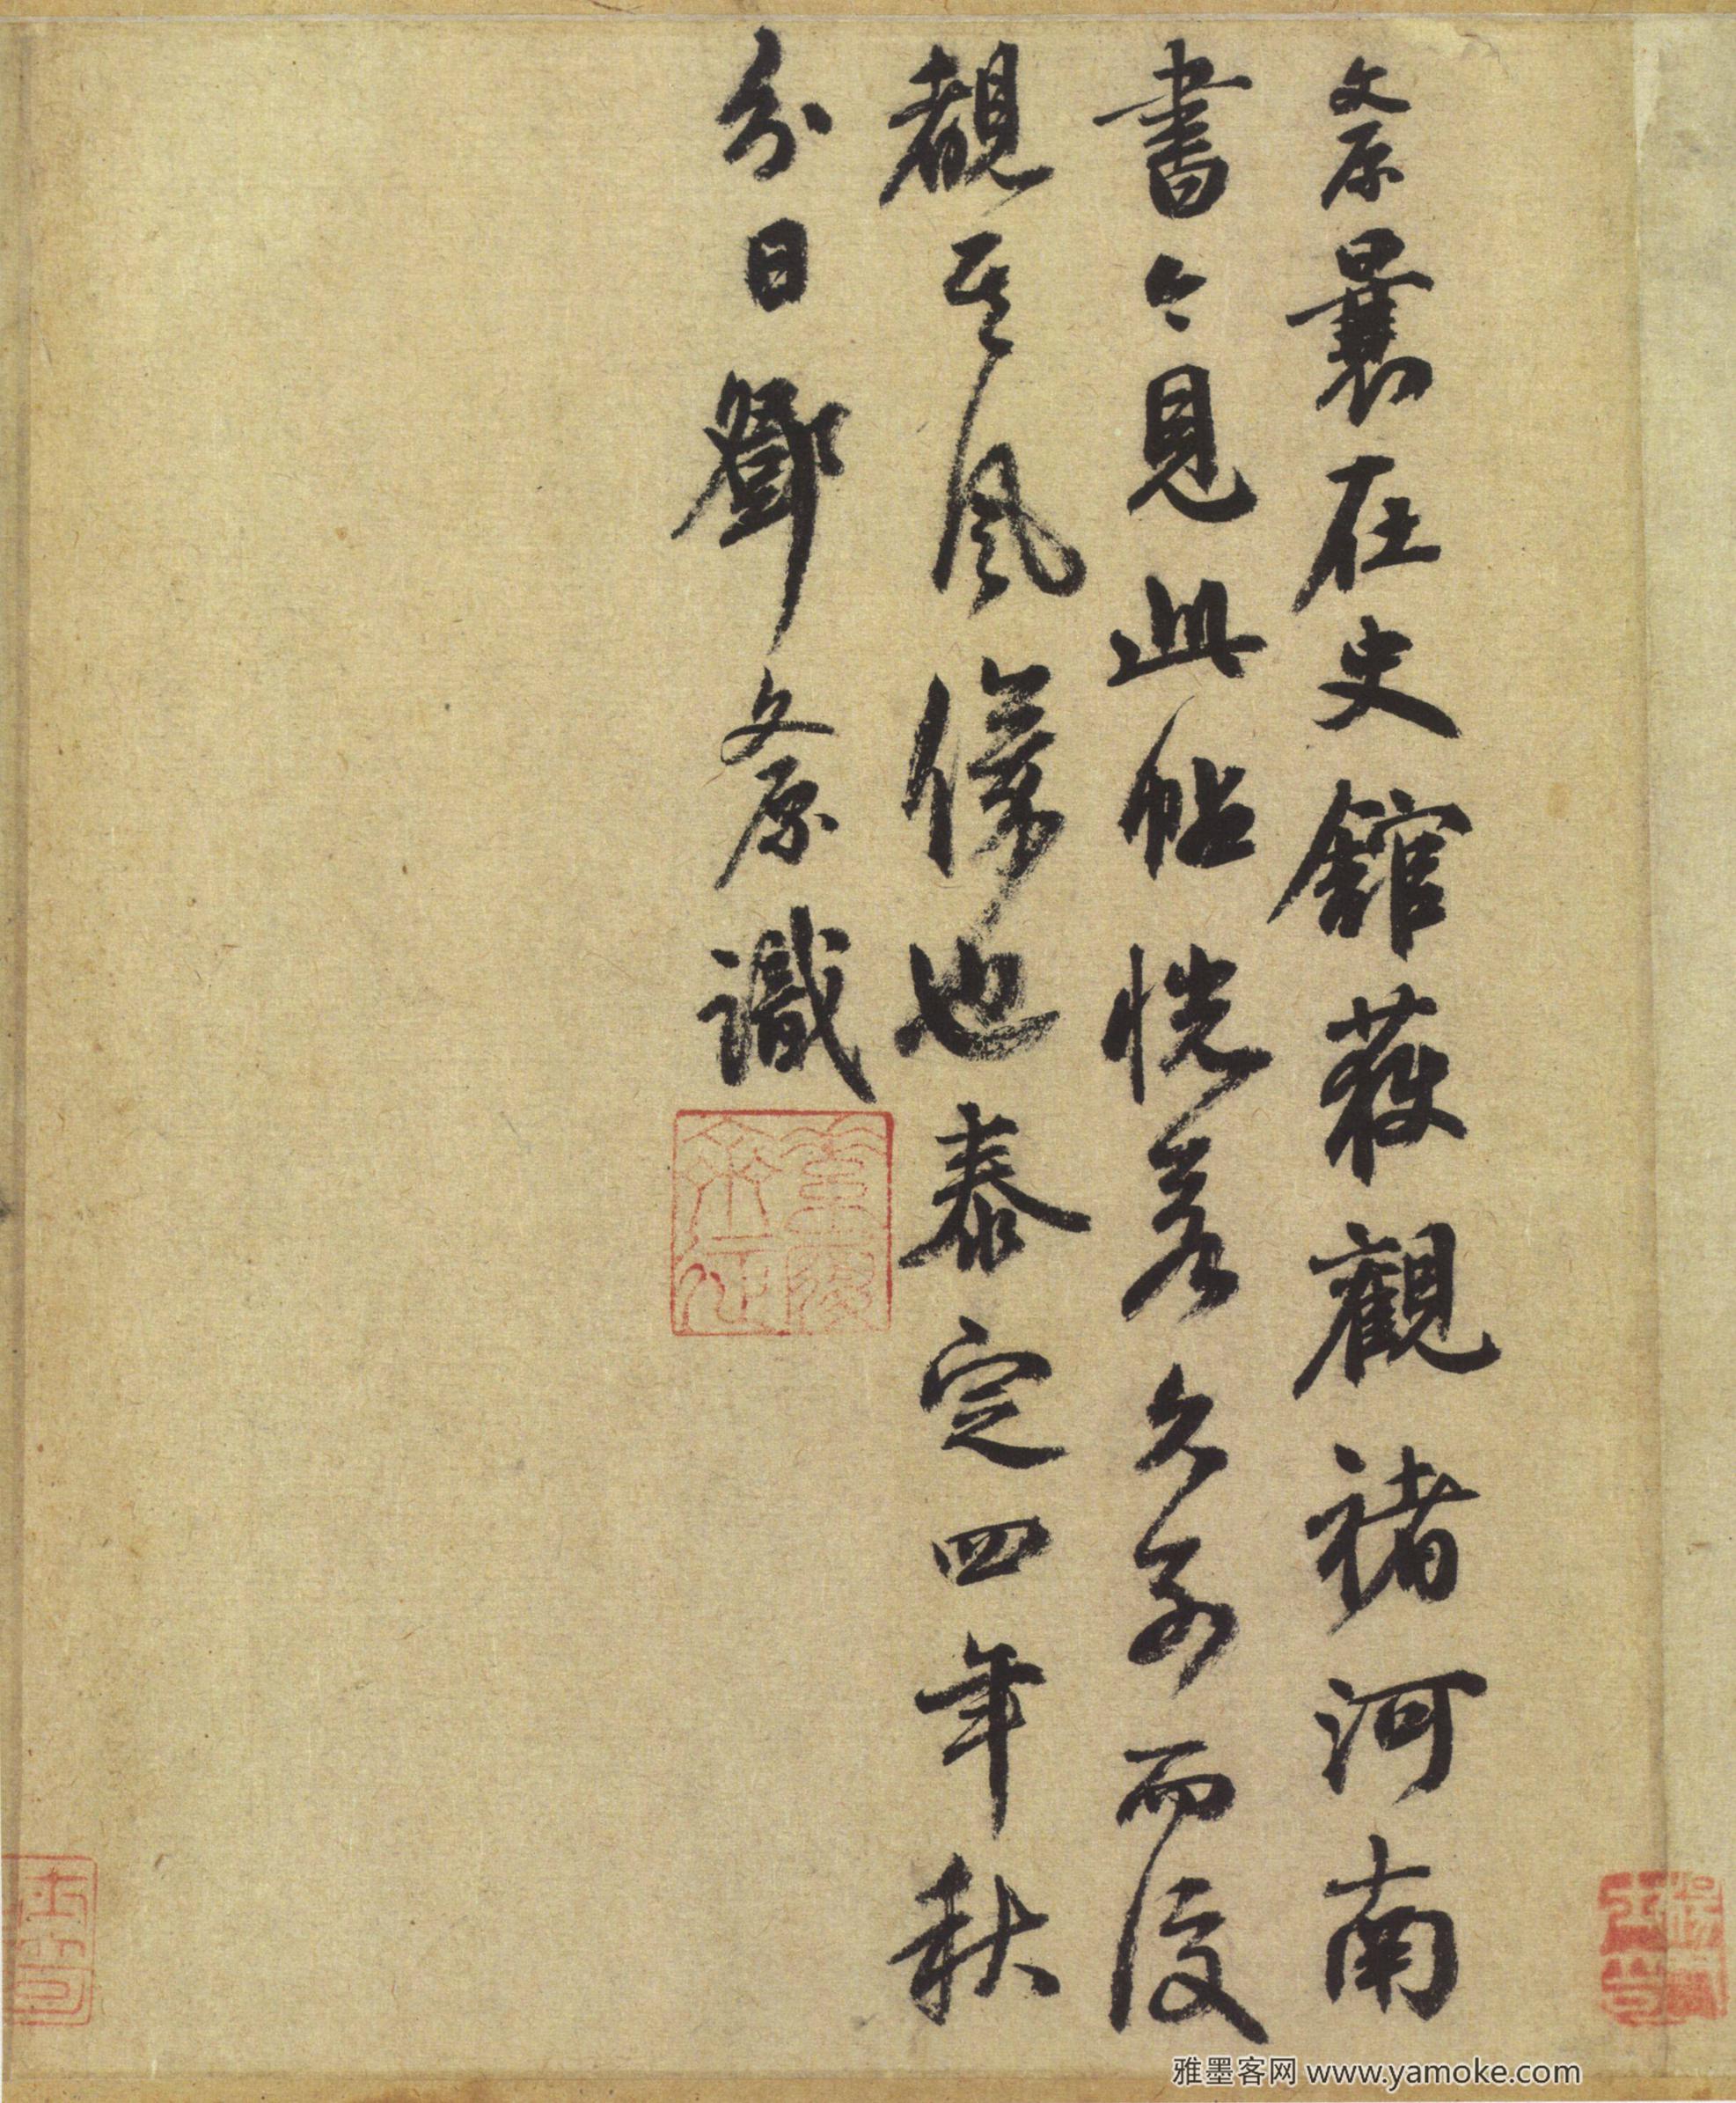 文原曩在史館获觀褚河南
書今見此帖恍若久別而復
覩其風儀也泰定四年秋
分日鄧文原識
雅墨客网 www.yamoke.com